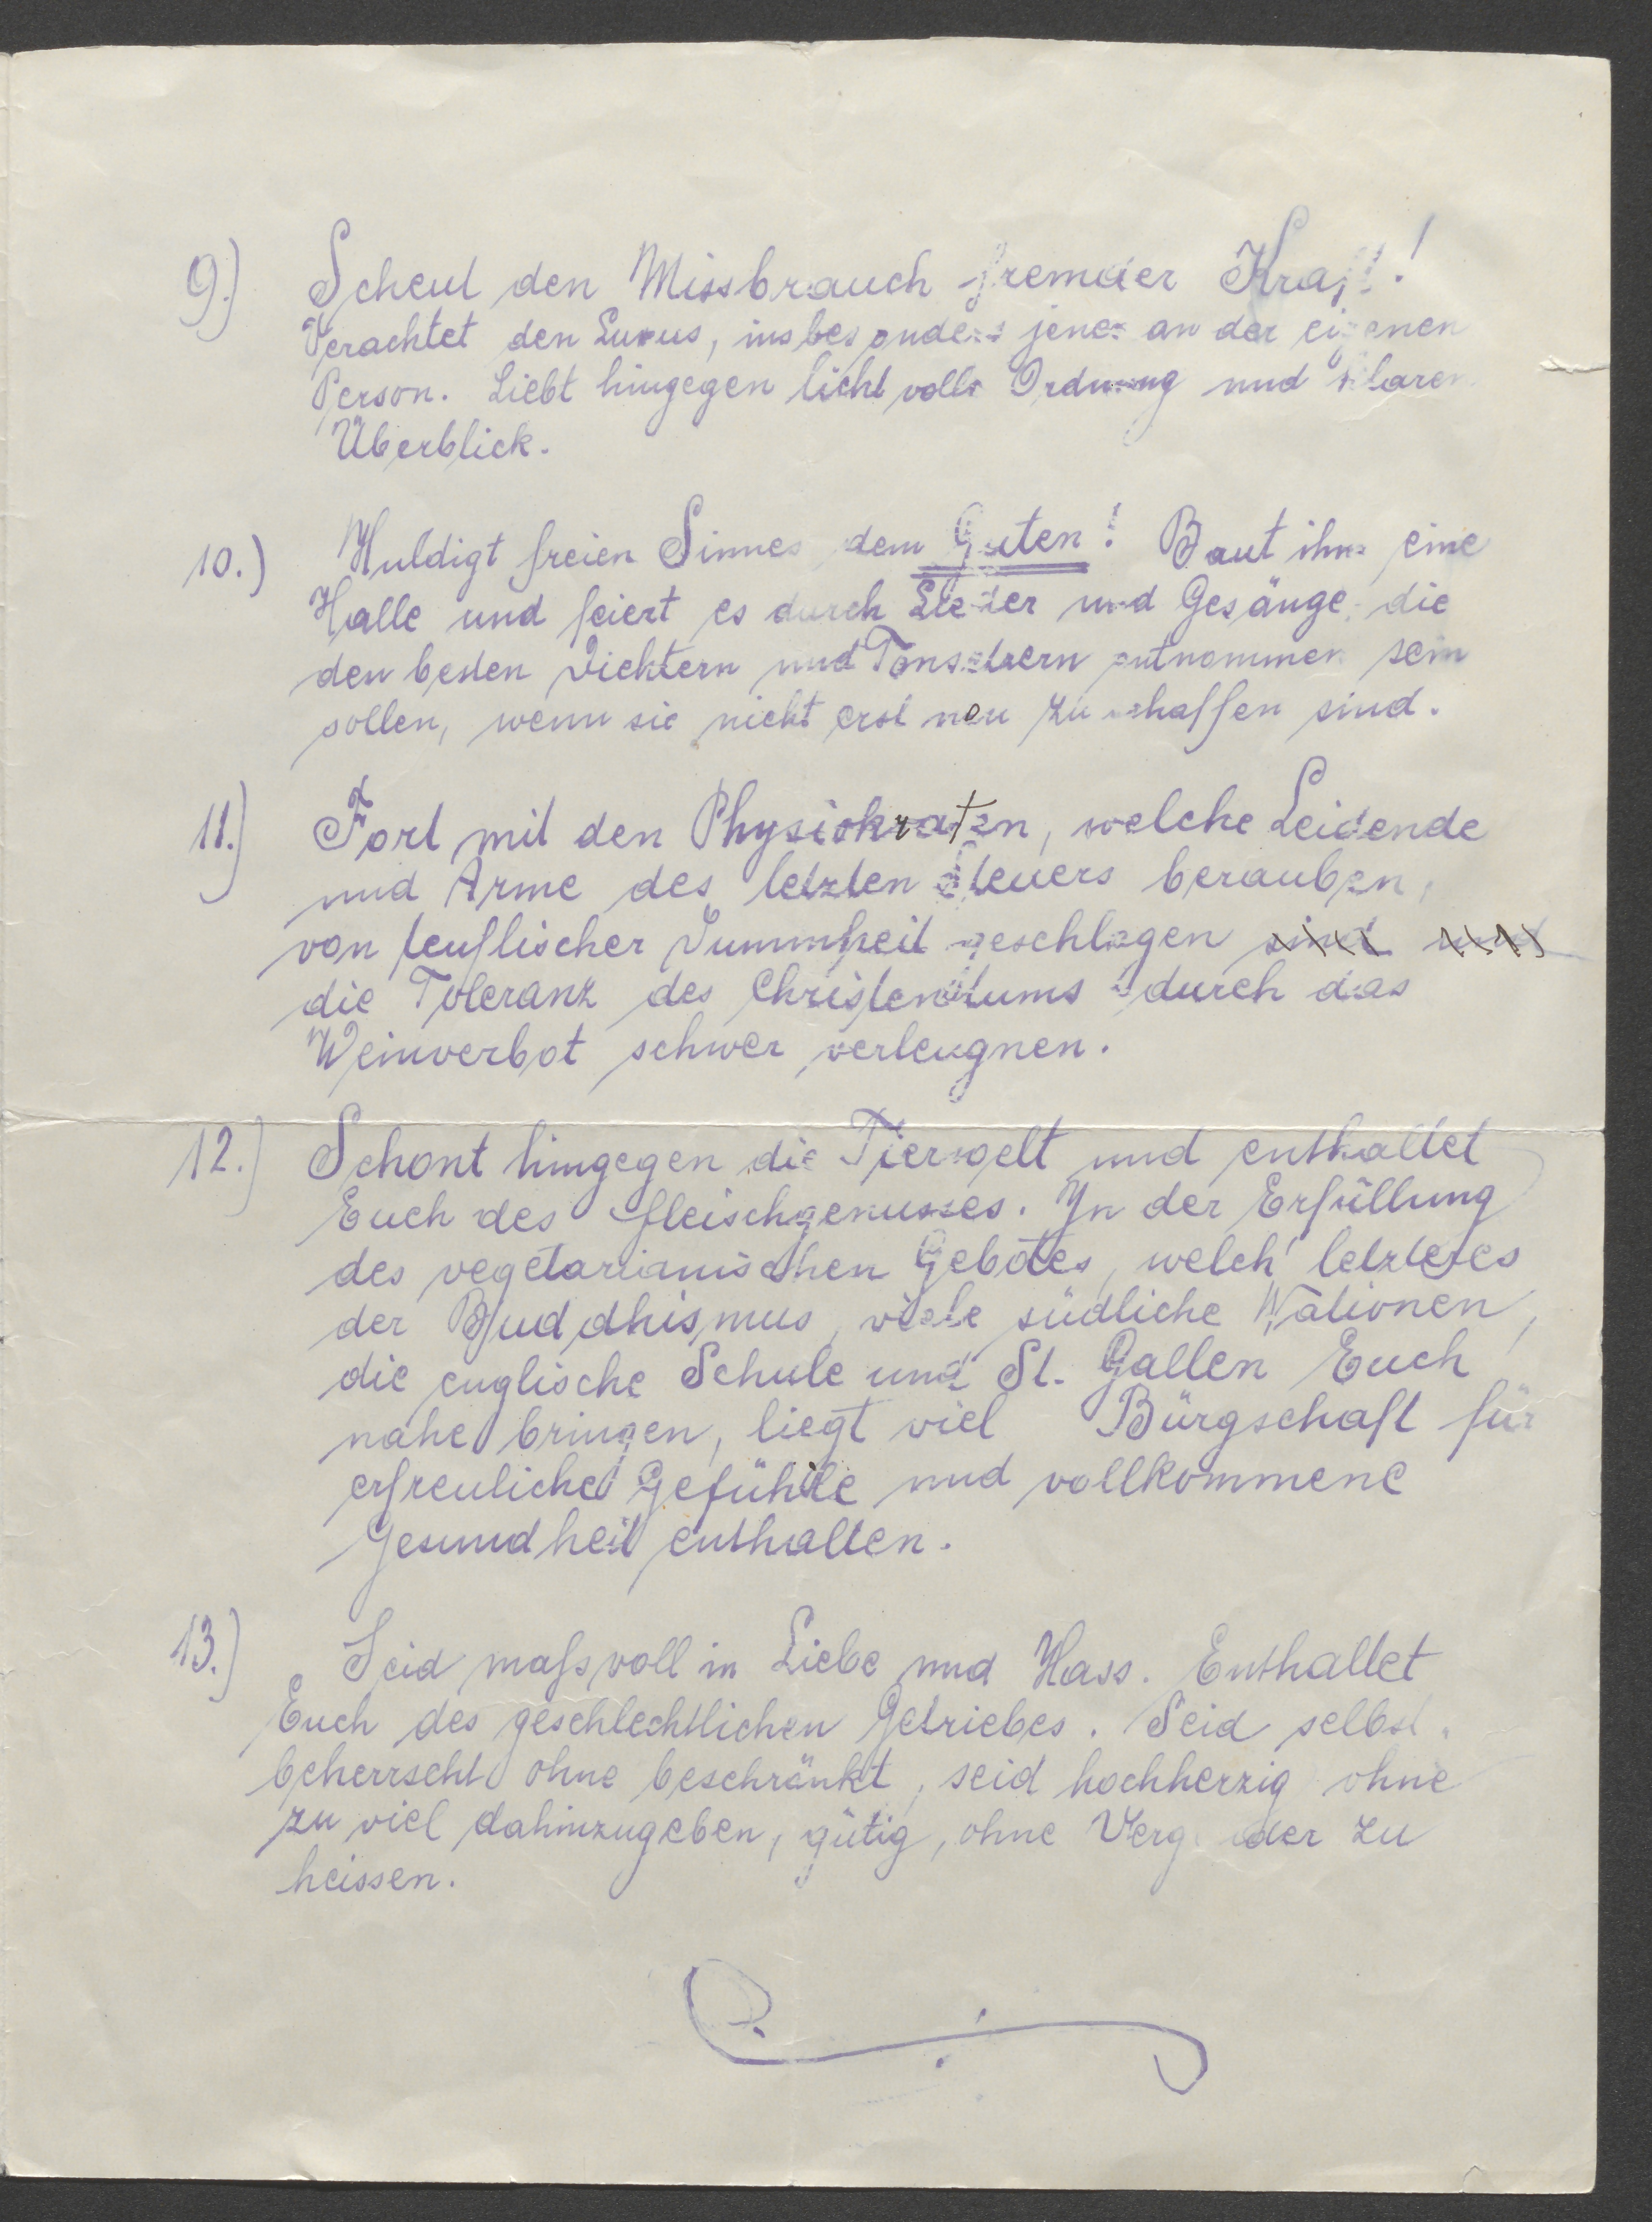 9.) Scheut den Missbrauch fremder Kraft!
Verachtet den Luxus, insbesonders jenen an der eigenen
Person. Liebt hingegen lichtvolle Ordnung und klaren
Überblick.
10.) Huldigt freien Sinnes dem Guten! Baut ihm eine
Halle und feiert es durch Lieder und Gesänge, die
den besten Dichtern und Tonsetzern entnommen sein
sollen, wenn sie nicht erst neu zu schaffen sind.
11.) Fort mit den Physiokraten, welche Leidende
und Arme des letzten Steuers berauben,
von teuflischer Dummheit geschlagen sind und
die Toleranz des Christentums durch das
Weinverbot schwer verleugnen.
12.) Schont hingegen die Tierwelt und enthaltet
Euch des Fleischgenusses. In der Erfüllung
des vegetarianischen Gebotes, welch' letzteres
der Buddhismus, viele südliche Nationen,
die englische Schule und St. Gallen Euch
nahe bringen, liegt viel Bürgschaft für
erfreuliche Gefühle und vollkommene
Gesundheit enthalten.
13.) Seid massvoll in Liebe und Hass. Enthaltet
Euch des geschlechtlichen Getriebes. Seid selbst-
beherrscht ohne beschränkt, seid hochherzig ohne
zu viel dahinzugeben, gütig, ohne Vergeuder zu
heissen.